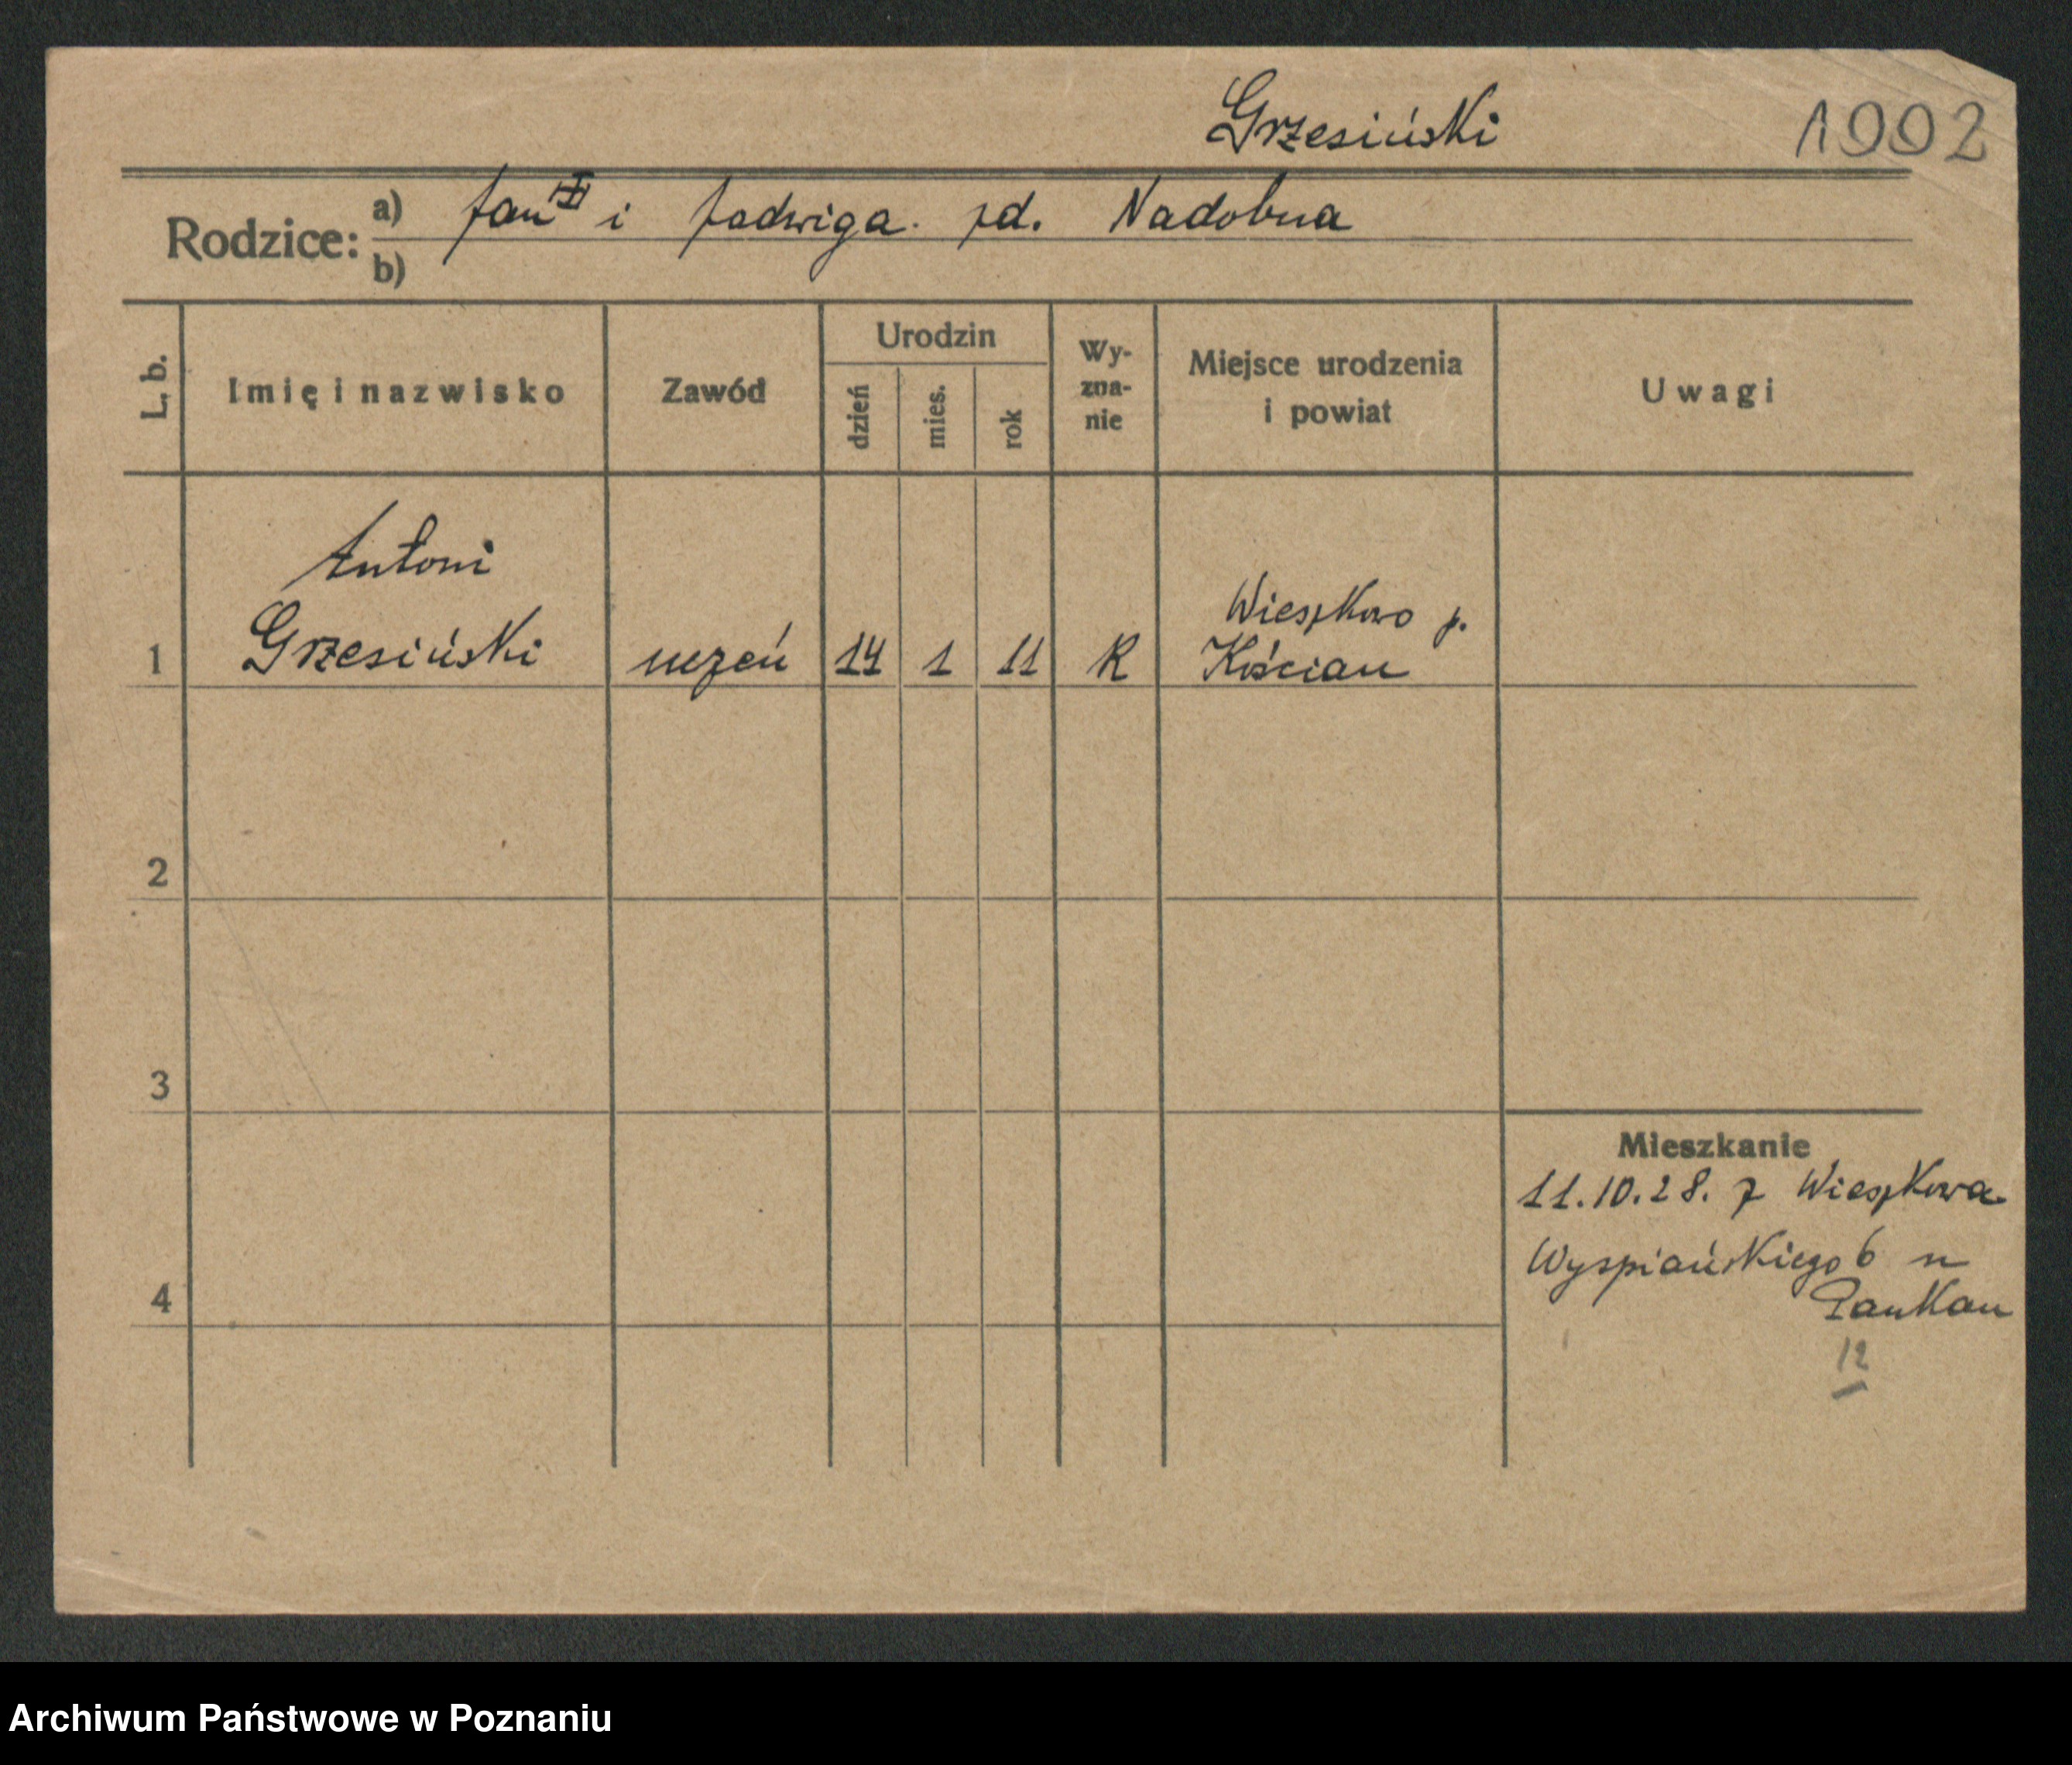 Grzesiński
1992
Rodzice: a) Jan i Jadwiga zd. Nadobna
b)
L. b. Imię i nazwisko Zawód Urodzin dzień mies. rok Wy-zna-nie Miejsce urodzenia i powiat Uwagi
Antoni
1 Grzesiński uczeń 14 1 11 R Wieszkowo p.
Kościan
2
3
Mieszkanie
11.10.28. z Wieszkowa
Wyspiańskiego 6 n
4
12
Archiwum Państwowe w Poznaniu